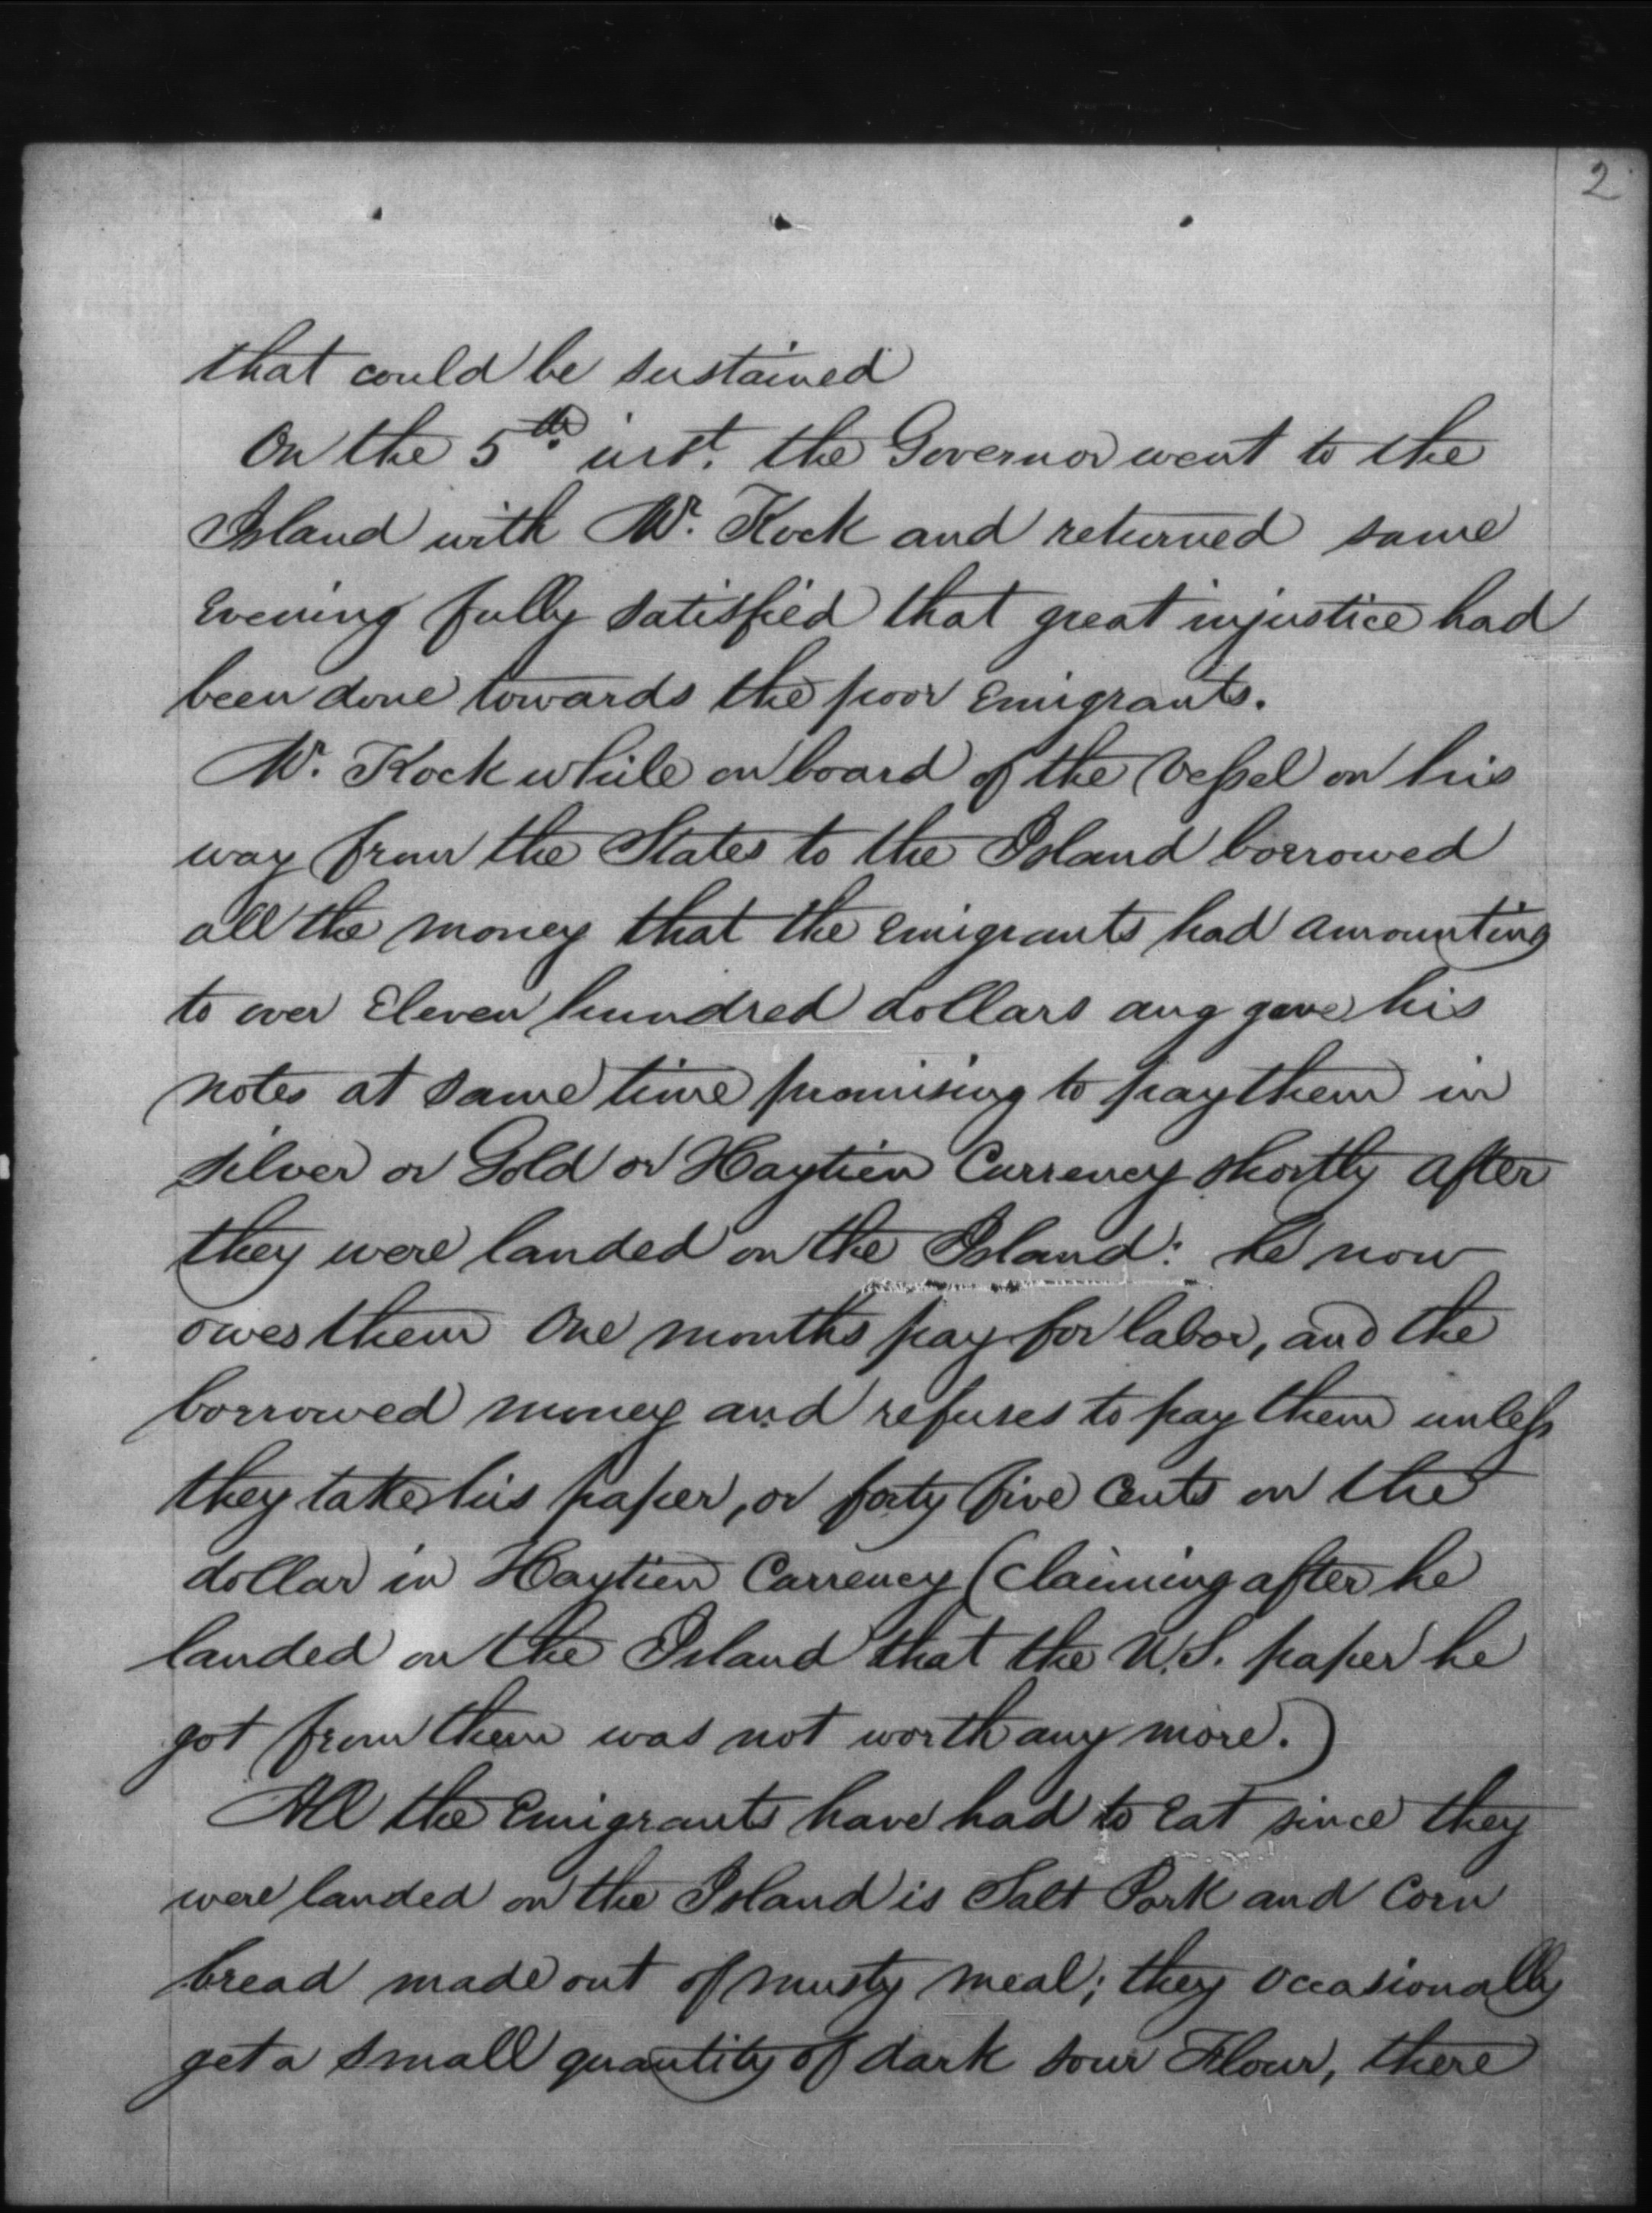 2
that could be sustained
On the 5th. inst. the Governor went to the
Island with Mr. Kock and returned same
Evening fully satisfied that great injustice had
been done towards the poor Emigrants.
Mr. Kock while on board of the Vessel on his
way from the States to the Island borrowed
all the money that the Emigrants had amounting
to over Eleven hundred dollars ang gave his
notes at same time promising to pay them in
silver or Gold or Haytien Currency shortly after
they were landed on the Island: he now
owes them One months pay for labor, and the
borrowed money and refuses to pay them unless
they take his paper, or forty five Cents on the
dollar in Haytien Currency (Claiming after he
landed on the Island that the U.S. paper he
got from them was not worth any more.)
All the Emigrants have had to Eat since they
were landed on the Island is Salt Pork and Corn
bread made out of musty meal; they Occasionally
get a small quantity of dark sour Flour, there